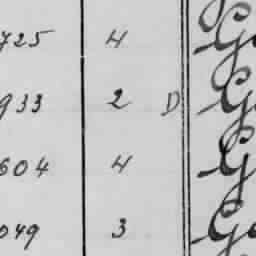 725 4 G
933 2 D G
604 4 G
049 3 G